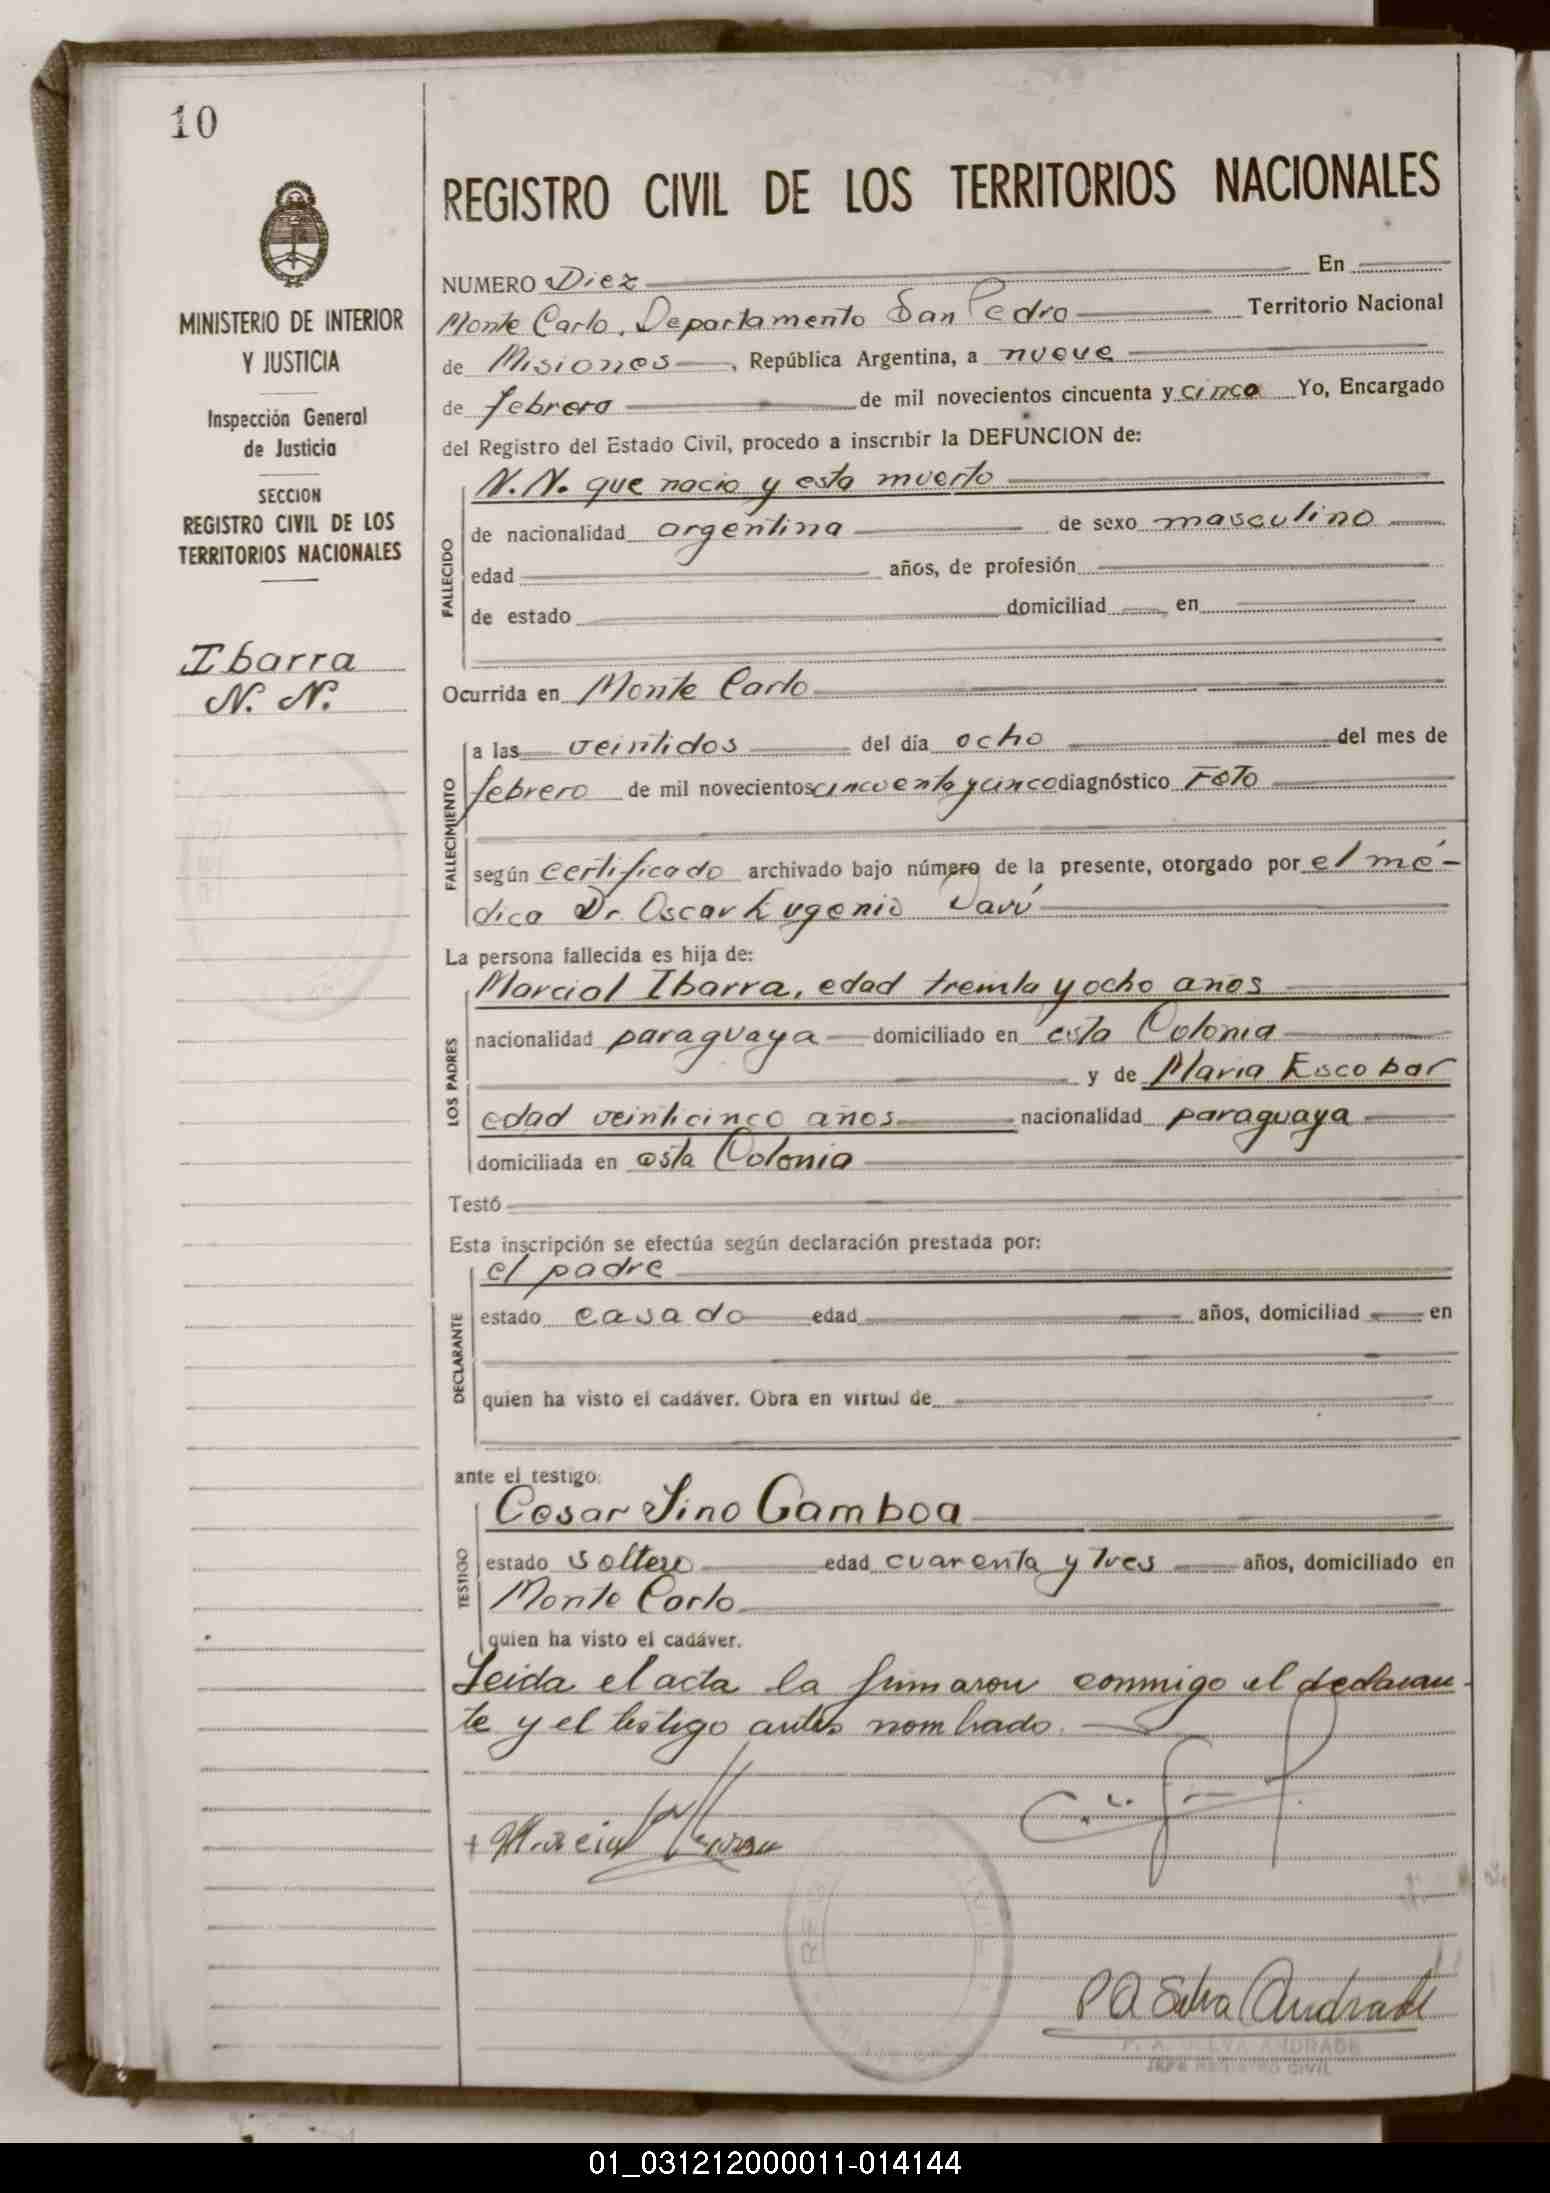 10
MINISTERIO DE INTERIOR
Y JUSTICIA
Inspección General
de Justicia
SECCION
REGISTRO CIVIL DE LOS
TERRITORIOS NACIONALES
Ibarra
N. N.
REGISTRO CIVIL DE LOS TERRITORIOS NACIONALES
NUMERO Diez En
Monte Carlo, Departamento San Pedro Territorio Nacional
de Misiones, República Argentina, a nueve
de febrero de mil novecientos cincuenta y cinco Yo, Encargado
del Registro del Estado Civil, procedo a inscribir la DEFUNCION de:
N.N. que nacio y esta muerto
FALLECIDO
de nacionalidad argentina de sexo masculino
edad años, de profesión
de estado domiciliad en
Ocurrida en Monte Carlo
FALLECIMIENTO
a las veintidos del día ocho del mes de
febrero de mil novecientos cincuenta y cinco diagnóstico FETO
según certificado archivado bajo número de la presente, otorgado por el mé-
dico Dr. Oscar Eugenio
La persona fallecida es hija de:
LOS PADRES
Marcial Ibarra, edad treinta y ocho años
nacionalidad paraguaya domiciliado en esta Colonia
y de Maria Escobar
edad veinticinco años nacionalidad paraguaya
domiciliada en esta Colonia
Testó
Esta inscripción se efectúa según declaración prestada por:
DECLARANTE
el padre
estado casado edad años, domiciliad en
quien ha visto el cadáver. Obra en virtud de
ante el testigo:
TESTIGO
Cesar Lino Gamboa
estado soltero edad cuarenta y tres años, domiciliado en
Monte Carlo
quien ha visto el cadáver.
Leida el acta la firmaron conmigo el declaran-
te y el testigo antes nombrado.
Marcial Ibarra
P A Silva Andrade
P. A. SILVA ANDRADE
JEFE REGISTRO CIVIL
01_031212000011-014144